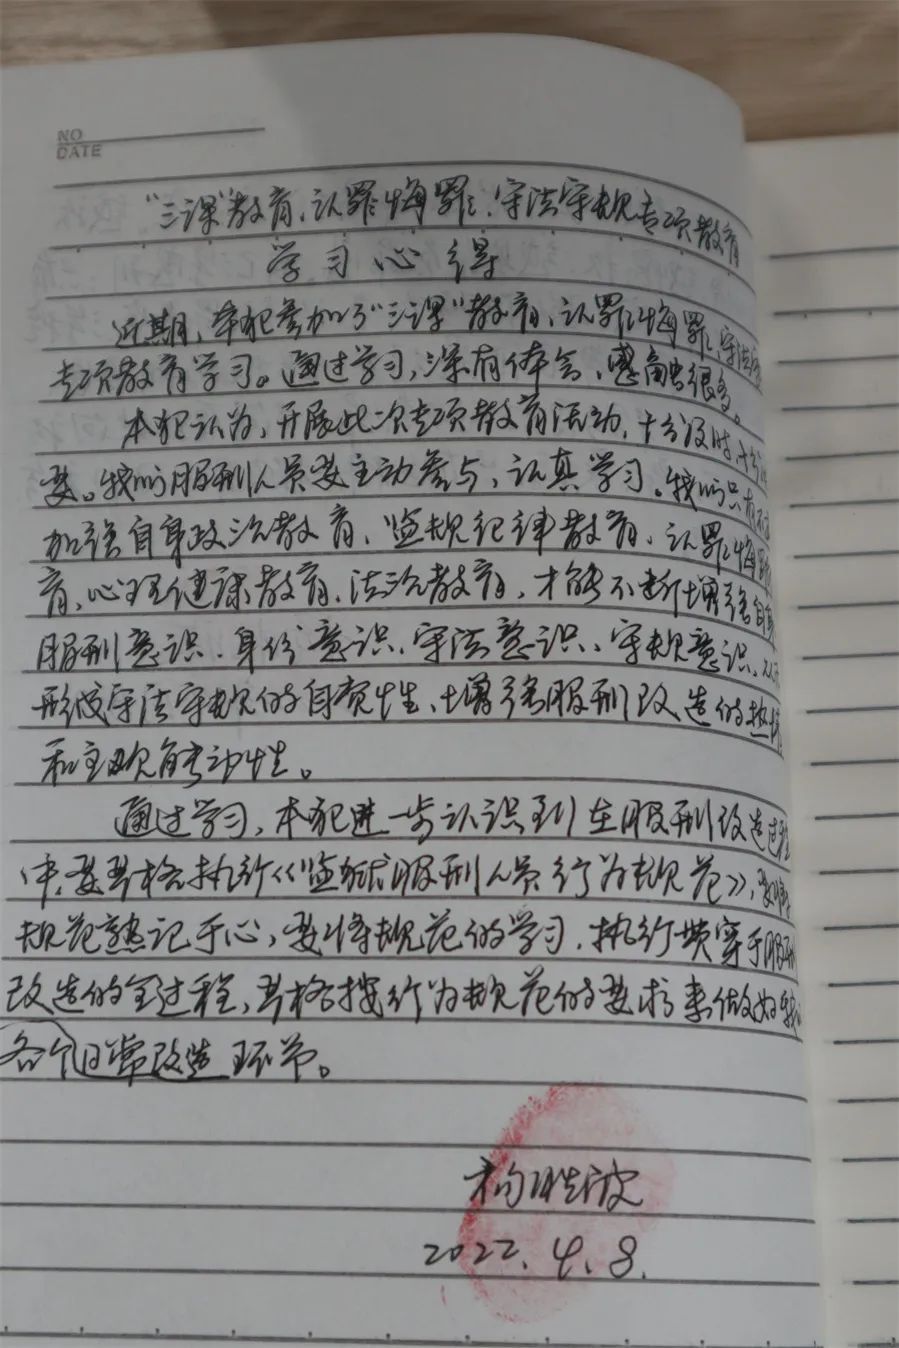 NO
DATE
“三课”教育、认罪悔罪、守法守规专项教育
学习心得
近期,本犯参加了“三课”教育、认罪悔罪、守法守
专项教育学习。通过学习,深有体会、感触很多。
本犯认为,开展此次专项教育活动,十分及时、十分
要。我们服刑人员要主动参与、认真学习。我们只有不
加强自身政治教育、监规纪律教育、认罪悔罪
育、心理健康教育、法治教育,才能不断增强自身
服刑意识、身份意识、守法意识、守规意识,从
形成守法守规的自觉性、增强服刑改造的热情
和主观能动性。
通过学习,本犯进一步认识到在服刑改造过程
中,要严格执行《监狱服刑人员行为规范》,要将
规范熟记于心,要将规范的学习、执行贯穿于服刑
改造的全过程,严格按行为规范的要求来做好
各个日常改造环节。
2022.4.8.